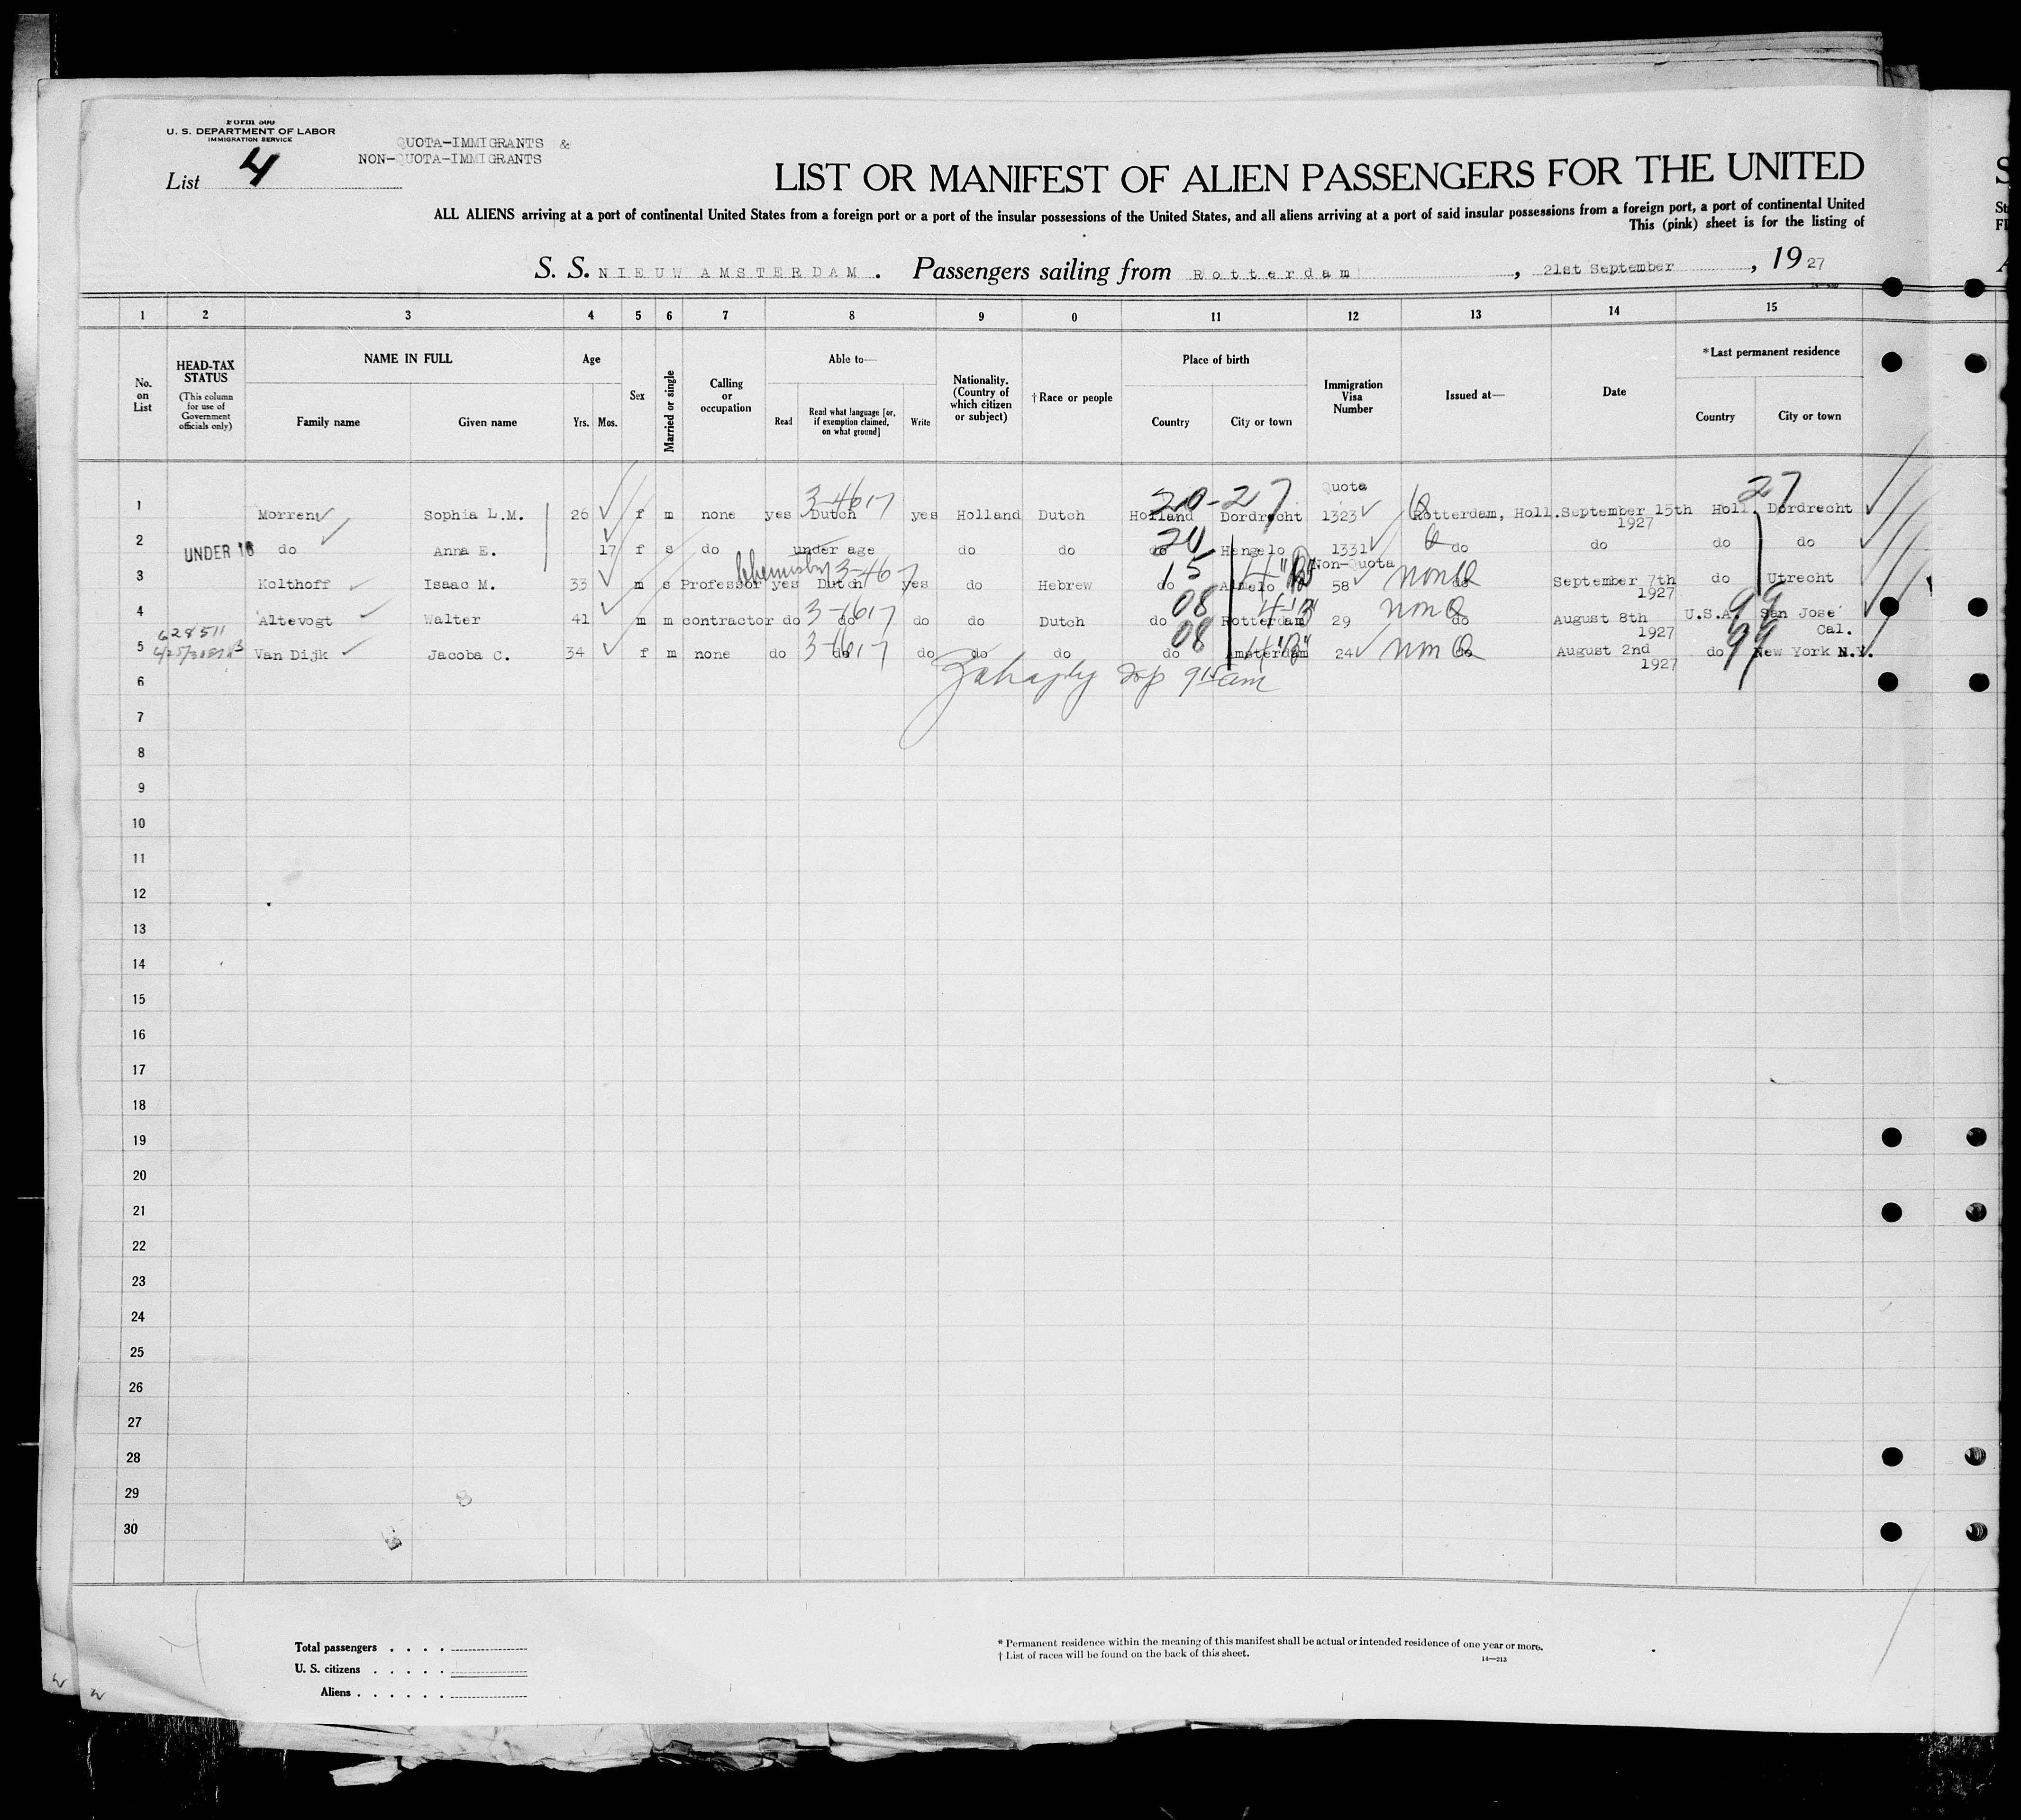 Form 500
U. S. DEPARTMENT OF LABOR
IMMIGRATION SERVICE
QUOTA-IMMIGRANTS &
NON-QUOTA-IMMIGRANTS
List 4
LIST OR MANIFEST OF ALIEN PASSENGERS FOR THE UNITED
ALL ALIENS arriving at a port of continental United States from a foreign port or a port of the insular possessions of the United States, and all aliens arriving at a port of said insular possessions from a foreign port, a port of continental United
This (pink) sheet is for the listing of
S. S. NIEUW AMSTERDAM. Passengers sailing from Rotterdam, 21st September, 1927
1 2 3 4 5 6 7 8 9 0 11 12 13 14 15
No. on List
HEAD-TAX STATUS
(This column for use of Government officials only)
NAME IN FULL
Family name Given name
Age
Yrs. Mos.
Sex
Married or single
Calling or occupation
Able to—
Read
Read what language [or, if exemption claimed, on what ground]
Write
Nationality. (Country of which citizen or subject)
† Race or people
Place of birth
Country City or town
Immigration Visa Number
Issued at—
Date
* Last permanent residence
Country City or town
3-4617 20-27 Quota 27
1 Morren Sophia L.M. 26 f m none yes Dutch yes Holland Dutch Holland Dordrecht 1323 Rotterdam, Holl. September 15th 1927 Holl. Dordrecht
20
2 UNDER 16 do Anna E. 17 f s do under age do do do Hengelo 1331 do do do do
Chemistry 3-467 15 4"B" Non-Quota
3 Kolthoff Isaac M. 33 m s Professor yes Dutch yes do Hebrew do Almelo 58 non Q do September 7th 1927 do Utrecht
3-1617 08 4"B" 99
4 Altevogt Walter 41 m m contractor do do do do Dutch do Rotterdam 29 non Q do August 8th 1927 U.S.A. San José Cal.
628511
3-1617 08 4"B" 99
5 Van Dijk Jacoba C. 34 f m none do do do do do do Amsterdam 24 non Q do August 2nd 1927 do New York N.Y.
6 9 15 am
7
8
9
10
11
12
13
14
15
16
17
18
19
20
21
22
23
24
25
26
27
28
29
30
Total passengers . . . .
U. S. citizens . . . . .
Aliens . . . . . .
* Permanent residence within the meaning of this manifest shall be actual or intended residence of one year or more.
† List of races will be found on the back of this sheet.
14—213